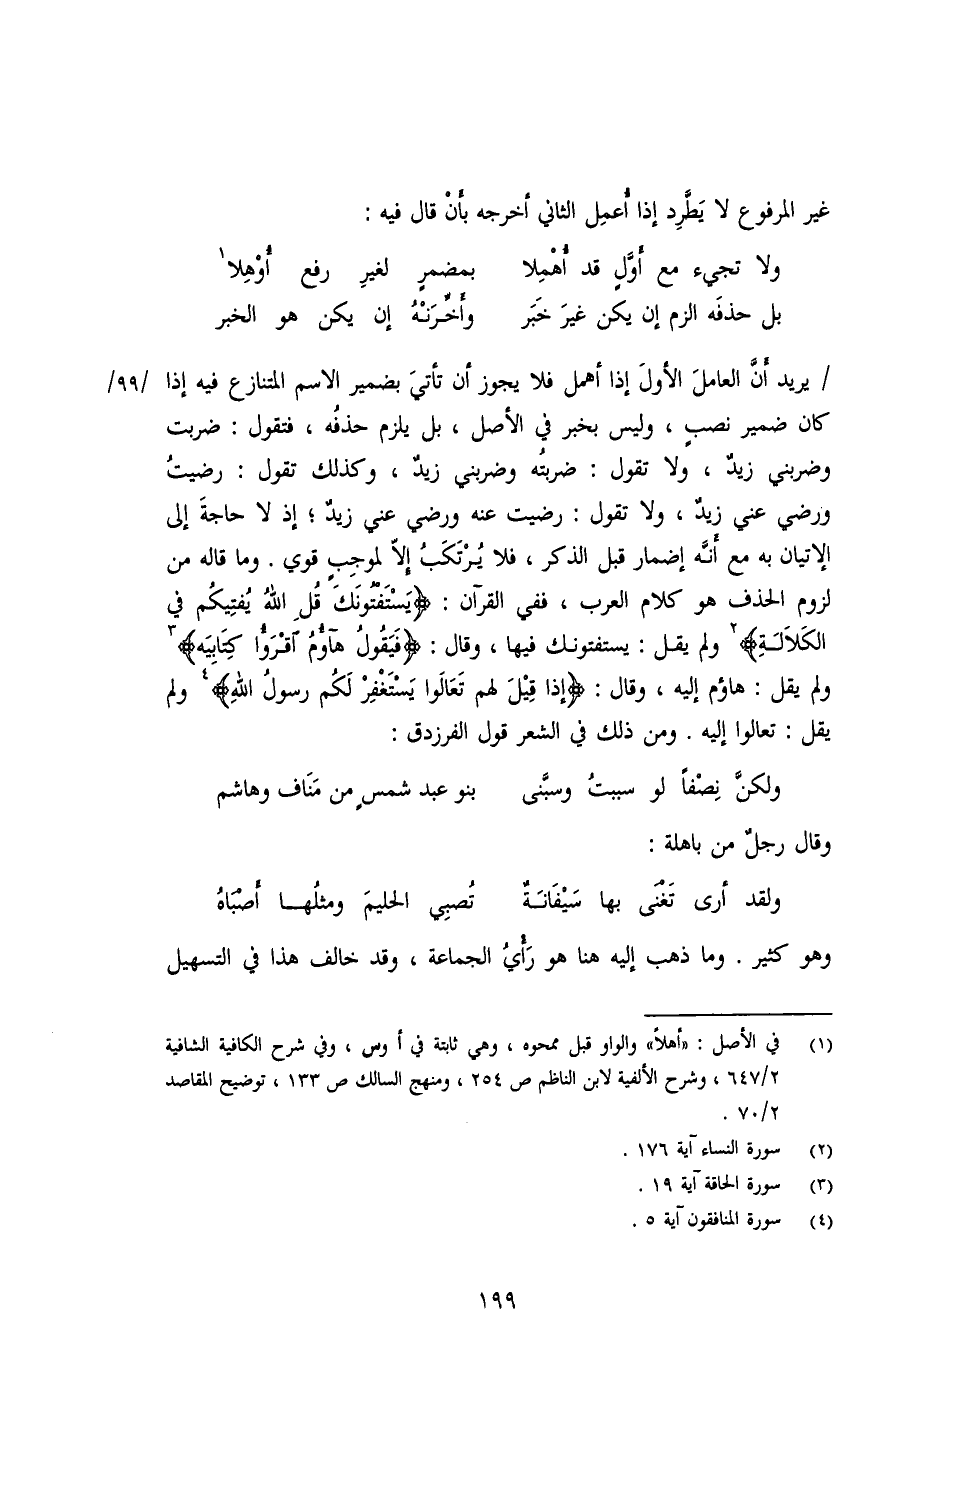 غير المرفوع لا يَطَّرِد إذا أُعمِل الثاني أخرجه بأَنْ قال فيه :
ولا تجيء مع أَوَّلٍ قد أُهْمِلا بمضمرٍ لغيرِ رفع أُوْهِلا١
بل حذفَه الزم إن يكن غيرَ خَبَر وأَخِّرَنْهُ إن يكن هو الخبر
/ يريد أَنَّ العاملَ الأولَ إذا أهمل فلا يجوز أن تأتيَ بضمير الاسم المتنازع فيه إذا /٩٩/
كان ضمير نصبٍ ، وليس بخبر في الأصل ، بل يلزم حذفُه ، فتقول : ضربت
وضربني زيدٌ ، ولا تقول : ضربتُه وضربني زيدٌ ، وكذلك تقول : رضيتُ
ورضي عني زيدٌ ، ولا تقول : رضيت عنه ورضي عني زيدٌ ؛ إذ لا حاجةَ إلى
الإتيان به مع أَنَّه إضمار قبل الذكر ، فلا يُرْتَكَبُ إلاّ لموجِبٍ قوي . وما قاله من
لزوم الحذف هو كلام العرب ، ففي القرآن : ﴿يَسْتَفْتُونَكَ قُلِ اللهُ يُفتِيكُم في
الكَلاَلَةِ﴾٢ ولم يقل : يستفتونك فيها ، وقال : ﴿فَيَقُولُ هآؤُمُ ٱقْرَؤُا كِتَابِيَه﴾٣
ولم يقل : هاؤم إليه ، وقال : ﴿إذا قِيْلَ لهم تَعَالَوا يَسْتَغْفِرْ لَكُم رسولُ اللهِ﴾٤ ولم
يقل : تعالوا إليه . ومن ذلك في الشعر قول الفرزدق :
ولكنَّ نِصْفاً لو سببتُ وسبَّنى بنو عبد شمسٍ من مَنَاف وهاشم
وقال رجلٌ من باهلة :
ولقد أرى تَغْنَى بها سَيْفَانَةٌ تُصبِي الحليمَ ومثلُهـا أَصْبَاهُ
وهو كثير . وما ذهب إليه هنا هو رَأْيُ الجماعة ، وقد خالف هذا في التسهيل
(١) في الأصل : «أهلاً» والواو قبل ممحوه ، وهي ثابتة في أ وس ، وفي شرح الكافية الشافية
٦٤٧/٢ ، وشرح الألفية لابن الناظم ص ٢٥٤ ، ومنهج السالك ص ١٣٣ ، توضيح المقاصد
٧٠/٢ .
(٢) سورة النساء آية ١٧٦ .
(٣) سورة الحاقة آية ١٩ .
(٤) سورة المنافقون آية ٥ .
١٩٩